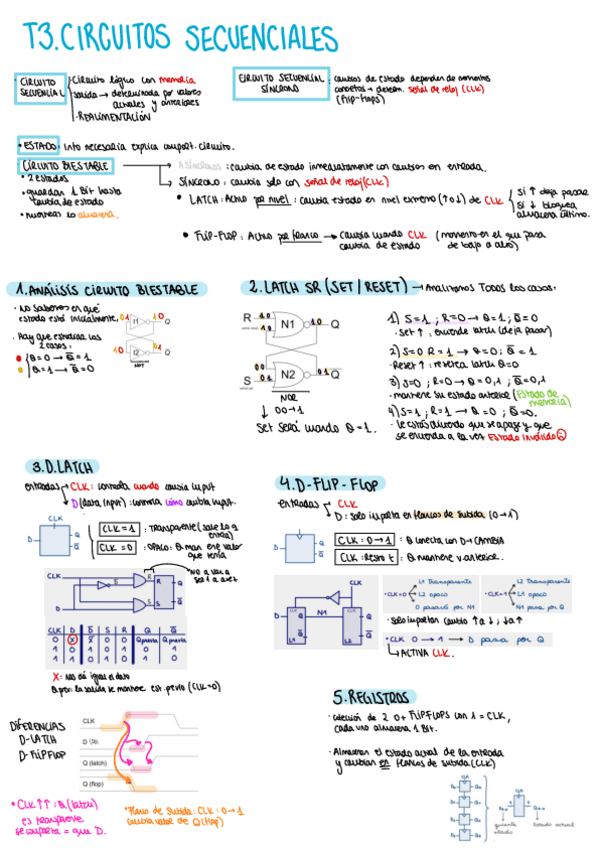 T3.CIRCUITOS SECUENCIALES
CIRCUITO SECUENCIAL
Circuito lógico con memoria
salida → determinada por valores
actuales y anteriores
·REALIMENTACIÓN
CIRCUITO SECUENCIAL SÍNCRONO
: cambios de estado dependen de momentos
concretos → determ. señal de reloj (CLK)
(Flip-flops)
• ESTADO: info necesaria explica comport. circuito.
• CIRCUITO BIESTABLE
• 2 estados
• guardan 1 Bit hasta
cambio de estado
• mientras lo almacena.
ASÍNCRONO: cambia de estado inmediatamente con cambios en entrada.
SÍNCRONO: cambia solo con señal de reloj (CLK)
• LATCH: Activo por nivel: cambia estado en nivel extremo (↑ o ↓) de CLK
Si ↑ deja pasar
Si ↓ bloquea
almacena último.
• FLIP-FLOP: Activo por flanco → cambia cuando CLK (momento en el que pasa
cambia de estado de bajo a alto)
1. ANÁLISIS CIRCUITO BIESTABLE
• no sabemos en qué
estado está inicialmente,
• Hay que estudiar los
2 casos:
Q=0 → Q̅=1
Q=1 → Q̅=0
I1
Q
I2
Q̅
NOT
2. LATCH SR (SET/RESET) → Analizamos TODOS los casos.
R
N1
Q
S
N2
Q̅
NOR
↓ 00→1
Set será cuando Q=1.
1) S=1; R=0 → Q=1; Q̅=0
·Set ↑: enciende latch (deja pasar)
2) S=0 R=1 → Q=0; Q̅=1
·Reset ↑: resetea latch Q=0
3) S=0; R=0 → Q=0,1; Q̅=0,1
·mantiene su estado anterior (Estado de
memoria)
4) S=1; R=1 → Q=0; Q̅=0.
· le estás diciendo que se apague y que
se encienda a la vez Estado inválido
3. D.LATCH
entradas → CLK: controla cuando cambia input
→ D (data input): controla cómo cambia input.
CLK
D
Q
Q̅
CLK=1: TRANSPARENTE (sale lo q entra)
CLK=0: OPACO: Q man ene valor
que tenía
no a van a
ser 1 a a vez
CLK
D
R
S
Q
Q̅
CLK D D̅ S R Q Q̅
0 X X̅ 0 0 Qprevia Q̅previa
0
1
X= nos da igual el dato
Q por la salida se mantiene est. previo (CLK=0)
4. D-FLIP-FLOP
entradas → CLK
→ D: solo importa en flancos de subida (0→1)
D
Q
Q̅
CLK: 0→1: Q conecta con D → CAMBIA
CLK: Resto t: Q mantiene v. anterior.
CLK
D
L1
N1
L2
Q
Q̅
·CLK=0
L1 Transparente
L2 opaco
D pasará por N1
·CLK=1
L2 Transparente
L1 opaco
N1 pasa por Q
• CLK 0 → 1 → D pasa por Q
↳ ACTIVA CLK.
DIFERENCIAS
D-LATCH
D-FLIPFLOP
CLK
Q (latch)
Q (flop)
• CLK ↑↑: Q(latch)
es transparente
se comporta = que D.
*Flanco de Subida: CLK: 0→1
cambia valor de Q (flop)
5. REGISTROS
· colección de 2 o + FLIP FLOPS con 1 = CLK,
cada uno almacena 1 Bit.
· Almacenan el estado actual de la entrada
y cambian en flancos de subida (CLK)
CLK
siguiente
estado
estado actual